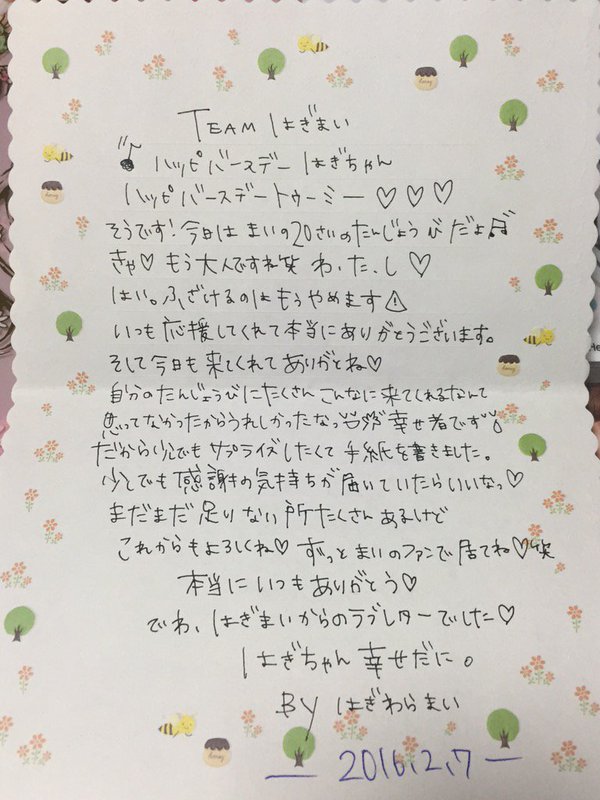 TEAM はぎまい
♪ ハッピバースデーはぎちゃん
ハッピバースデートゥーミー♡♡♡
そうです!今日はまいの20さいのたんじょうびだよ♫
きゃ♡もう大人ですね笑 わ、た、し♡
はい。ふざけるのはもうやめます⚠
いつも応援してくれて本当にありがとうございます。
そして今日も来てくれてありがとね♡
自分のたんじょうびにたくさんこんなに来てくれるなんて
思ってなかったからうれしかったなっ 幸せ者です
だから少しでもサプライズしたくて手紙を書きました。
少しでも感謝の気持ちが届いていたらいいなっ♡
まだまだ足りない所たくさんあるけど
これからもよろしくね♡ずっとまいのファンで居てね♡笑
本当にいつもありがとう♡
でわ、はぎまいからのラブレターでした♡
はぎちゃん幸せだに。
By はぎわらまい
— 2016.2.7 —
honey
honey
honey
honey